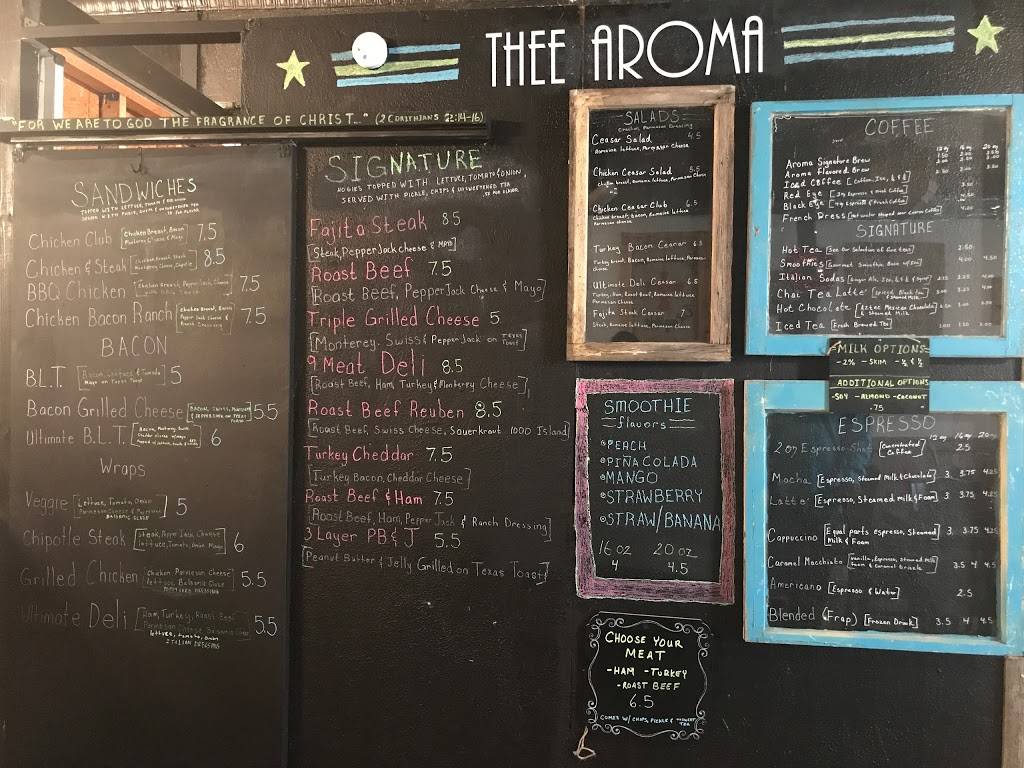 THEE AROMA
"FOR WE ARE TO GOD THE FRAGRANCE OF CHRIST..." (2 CORINTHIANS 2:14-16)
SANDWICHES
TOPPED WITH LETTUCE, TOMATO & ONION
Chicken Club [Chicken Breast, Bacon 7.5
Chicken & Steak 8.5
BBQ Chicken [Chicken Breast, Pepper Jack, Cheese 7.5
Chicken Bacon Ranch [Chicken Breast, Bacon 7.5
BACON
B.L.T. [Bacon, Lettuce, & Tomato 5
Mayo on Texas Toast]
Bacon Grilled Cheese [BACON, SWISS, 5.5
Ultimate B.L.T. 6
Wraps
Veggie [Lettuce, Tomato, Onion 5
BALSAMIC GLAZE
Chipotle Steak [Steak, Pepper Jack, Cheese 6
Lettuce, Tomato, Onion, Mayo]
Grilled Chicken [Chicken, Parmesan Cheese 5.5
Ultimate Deli [Ham, Turkey, Roast Beef 5.5
Lettuce, Tomato, Onion
ITALIAN DRESSING
SIGNATURE
HOGIES TOPPED WITH LETTUCE, TOMATO & ONION,
SERVED WITH PICKLE, CHIPS & UNSWEETENED TEA
Fajita Steak 8.5
[Steak, Pepper Jack Cheese & MAYO]
Roast Beef 7.5
[Roast Beef, Pepper Jack Cheese & Mayo]
Triple Grilled Cheese 5
[Monterey, Swiss & Pepper Jack on TEXAS TOAST]
9 Meat Deli 8.5
[Roast Beef, Ham, Turkey & Monterey Cheese]
Roast Beef Reuben 8.5
[Roast Beef, Swiss Cheese, Sauerkraut 1000 Island]
Turkey Cheddar 7.5
[Turkey Bacon, Cheddar Cheese]
Roast Beef & Ham 7.5
[Roast Beef, Ham, Pepper Jack & Ranch Dressing]
3 Layer PB & J 5.5
[Peanut Butter & Jelly Grilled on Texas Toast]
SALADS
Ceasar Salad 4.5
Romaine Lettuce, Parmesan Cheese
Chicken Ceasar Salad 5.5
Chicken Ceasar Club 6
Chicken breast, Bacon, Romaine lettuce
Parmesan cheese
Turkey Bacon Ceasar 6.5
Turkey breast, Bacon, Romaine lettuce, Parmesan
Cheese
Ultimate Deli Ceasar 6.5
Turkey, Ham, Roast Beef, Romaine lettuce
Parmesan Cheese
Fajita Steak Ceasar 7
Steak, Romaine lettuce, Parmesan Cheese
SMOOTHIE
flavors
PEACH
PIÑA COLADA
MANGO
STRAWBERRY
STRAW/BANANA
16 oz 20 oz
4 4.5
CHOOSE YOUR
MEAT
-HAM -TURKEY
-ROAST BEEF
6.5
COMES W/ CHIPS, PICKLE &
COFFEE
12 oz 16 oz 20 oz
Aroma Signature Brew
Aroma Flavored Brew
Iced Coffee
Red Eye
Black Eye
French Press
SIGNATURE
Hot Tea [See Our Selection of fine teas] 2.50
Smoothies 4.00 4.50
Italian Sodas
Chai Tea Latte
Hot Chocolate
Iced Tea [Fresh Brewed Tea]
MILK OPTIONS
-2% -SKIM -½ & ½
ADDITIONAL OPTIONS
-SOY -ALMOND -COCONUT
.75
ESPRESSO
12 oz 16 oz 20 oz
2 oz Espresso Shot [Concentrated Coffee] 2.5
Mocha [Espresso, Steamed Milk & Chocolate] 3 3.75 4.25
Latte [Espresso, Steamed Milk & Foam] 3 3.75 4.25
Cappuccino [Equal parts espresso, Steamed 3 3.75 4.25
Milk & Foam]
Caramel Macchiato [Vanilla, Espresso, Steamed Milk 3.5 4 4.5
Foam & Caramel Drizzle]
Americano [Espresso & Water] 2.5
Blended (Frap) [Frozen Drink] 3.5 4 4.5